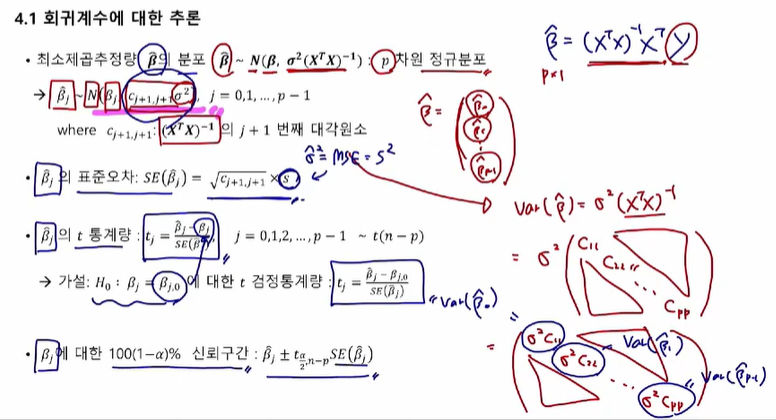 4.1 회귀계수에 대한 추론
• 최소제곱추정량 β̂의 분포 β̂ ~ N(β, σ²(XᵀX)⁻¹) : p차원 정규분포
→ β̂ⱼ ~ N(βⱼ, cⱼ₊₁,ⱼ₊₁σ²) j = 0,1,…,p − 1
where cⱼ₊₁,ⱼ₊₁: (XᵀX)⁻¹의 j + 1 번째 대각원소
• β̂ⱼ의 표준오차: SE(β̂ⱼ) = √cⱼ₊₁,ⱼ₊₁ × s
• β̂ⱼ의 t 통계량 : tⱼ = (β̂ⱼ−βⱼ)/SE(β̂ⱼ), j = 0,1,2,…,p − 1 ~ t(n − p)
→ 가설: H₀ : βⱼ = βⱼ,₀에 대한 t 검정통계량 : tⱼ = (β̂ⱼ−βⱼ,₀)/SE(β̂ⱼ)
• βⱼ에 대한 100(1−α)% 신뢰구간 : β̂ⱼ ± t_(α/2,n−p) SE(β̂ⱼ)
β̂ = (XᵀX)⁻¹Xᵀy
p×1
β̂ = (β̂₀
β̂₁
⋮
β̂p-1)
σ̂² = MSE = S²
Var(β̂) = σ²(XᵀX)⁻¹
= σ² (C₁₁
C₂₂
⋱
Cpp)
Var(β̂₀)
= (σ²C₁₁
σ²C₂₂ Var(β̂₁)
⋱
σ²Cpp) Var(β̂p-1)